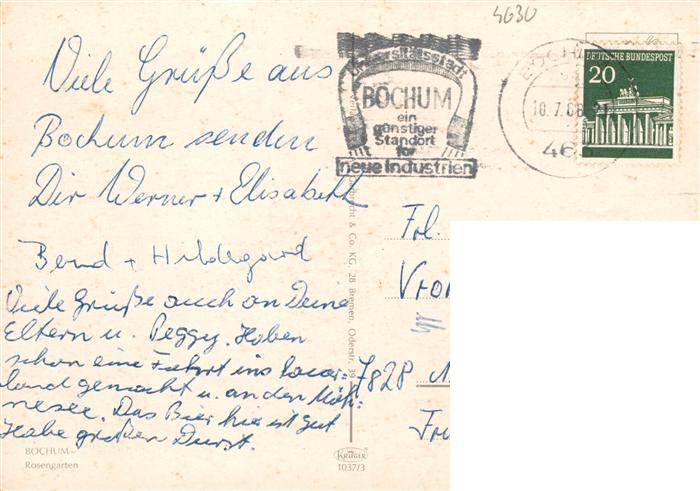 4630
Universitätsstadt
BOCHUM
ein
günstiger
Standort
für
neue Industrien
10.7.68
46
DEUTSCHE BUNDESPOST
20
Viele Grüße aus
Bochum senden
Dir Werner + Elisabeth
Bernd + Hildegard
Viele Grüße auch an Deine
Eltern u. Peggy. Haben
schon eine Fahrt ins Sauer-
land gemacht u. an den Möh-
nesee. Das Bier hier ist gut
Habe großen Durst.
Frl.
7828
& Co. KG, 28 Bremen, Oderstr. 39
BOCHUM–
Rosengarten
KRÜGER
1037/3